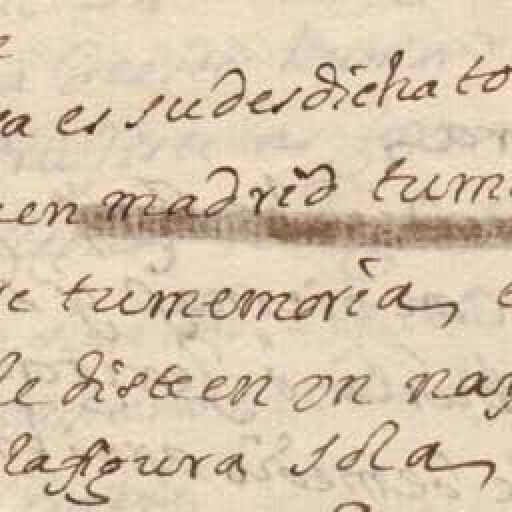 es sudesdicha to
en madrid tum
tumemoria,
le disteen vn nay
lafigura sola,